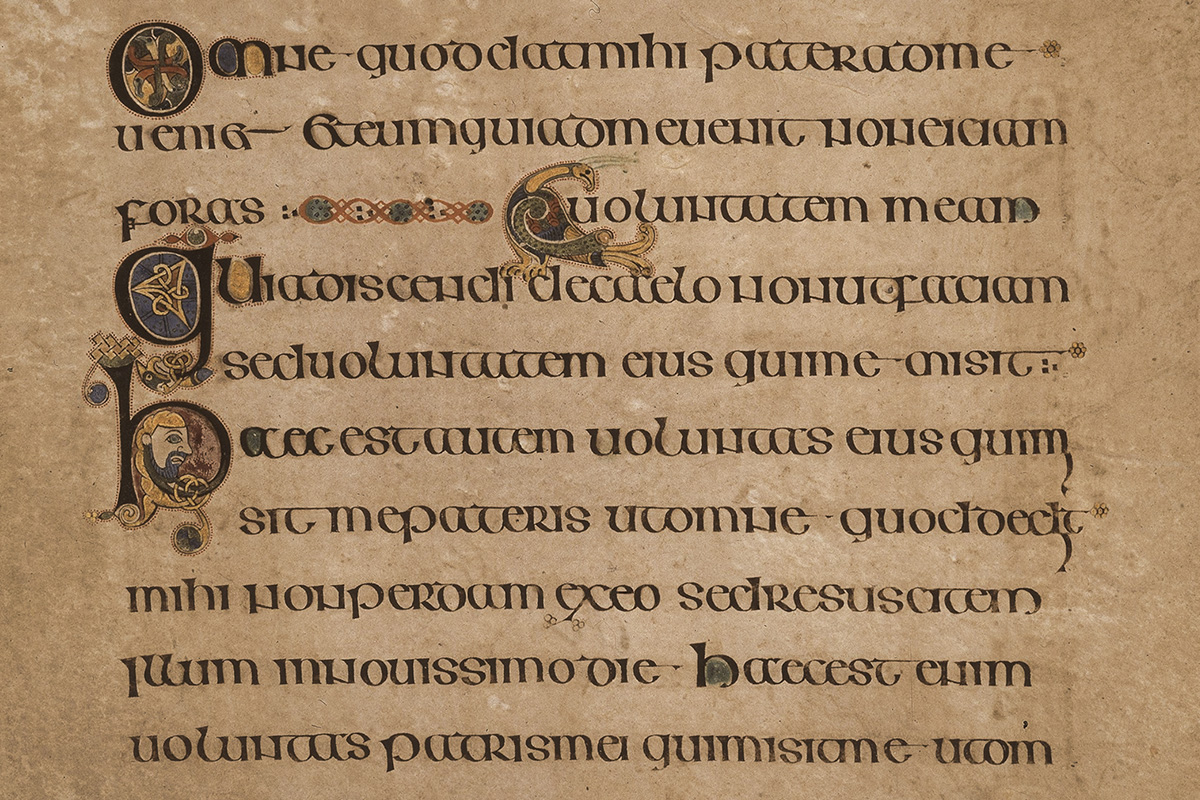 Omne quod dat mihi pater ad me
ueni& &eum qui ad me uenit non eiciam
foras : uoluntatem meam
Quia discendi de caelo non ut faciam
sed uoluntatem eius qui me misit :
haec est autem uoluntas eius qui mi
sit me pateris ut omne quod dedit
mihi non perdam ex eo sed resuscitem
illum in nouissimo die haec est enim
uoluntas patris mei qui misit me ut om